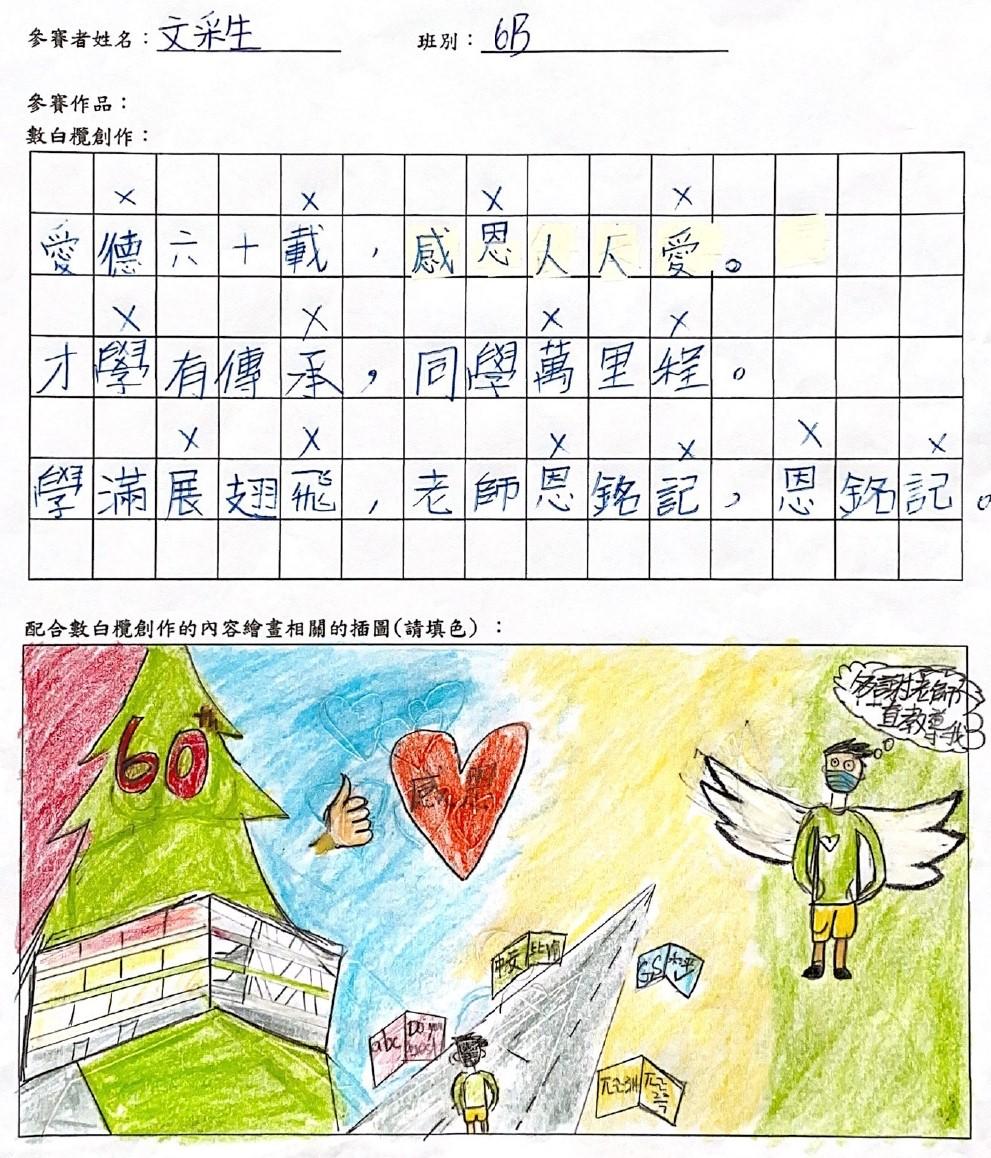 參賽者姓名：文采生 班別：6B
參賽作品：
數白欖創作：
× × × ×
愛德六十載，感恩人人愛。
× × × ×
才學有傳承，同學萬里程。
× × × × × ×
學滿展翅飛，老師恩銘記，恩銘記。
配合數白欖創作的內容繪畫相關的插圖(請填色)：
多謝老師
直教導我
60th
感恩
中文
GS
abc Do you